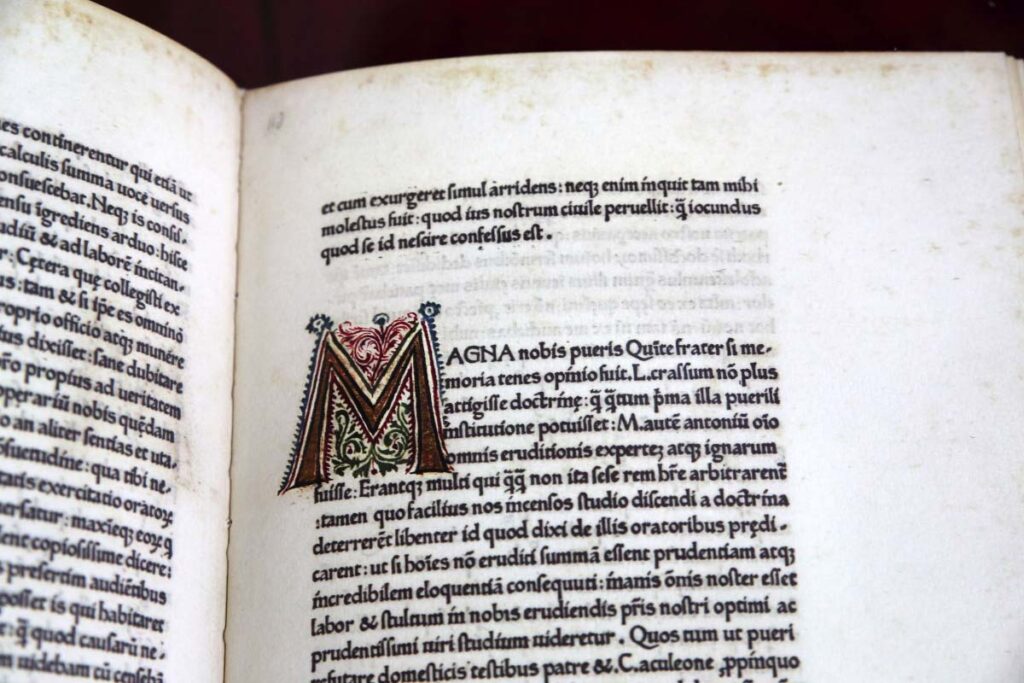 es continerentur qui etiā ut
calculis summa uoce uersus
onsuescebat. Neqꝫ is consi⸗
ensu īgrediens arduo: hisce
adiū & ad laborē īncitan⸗
r: Cętera quę collegisti ex
us: tam & si ip̄e es omnino
roprio officio atqꝫ munere
us dixisset: sane dubitare
ro propius ad ueritatem
operariū nobis quędam
o an aliter sentias et uta⸗
suetudine: qua tibi ne⸗
taris exercitatio oratoꝝ
uersatur: maxīeqꝫ eoꝝ q̄
lent copiosissime dicere:
s presertim audiētibus
posset is qui habitaret
e: q̄ quod causarū ne⸗
m uidebam cū censebā
et cum exurgeret simul arridens: neqꝫ enim inquit tam mihi
molestus fuit: quod ius nostrum ciuile peruellit: q̄ iocundus
quod se id nescire confessus est.
MAGNA nobis pueris Quīte frater si me⸗
moria tenes opinio fuit. L. crassum nō plus
attigisse doctrinę: q̄ q̄tum p̄ma illa puerili
institutione potuisset: M. autē antoniū oīo
omnis eruditionis expertez atqꝫ ignarum
fuisse: Erantqꝫ multi qui q̄q̄ non ita sese rem hr̄e arbitrarent̄
:tamen quo facilius nos incensos studio discendi a doctrina
deterrerēt libenter id quod dixi de illis oratoribus prędi⸗
carent: ut si hoīes nō eruditi summā essent prudentiam atqꝫ
incredibilem eloquentiā consequuti: inanis ōnis noster esset
labor & stultum in nobis erudiendis pr̄is nostri optimi ac
prudentissimi uiri studium uideretur. Quos tum ut pueri
refutare domesticis testibus patre &. C. aculeone ꝓpinquo